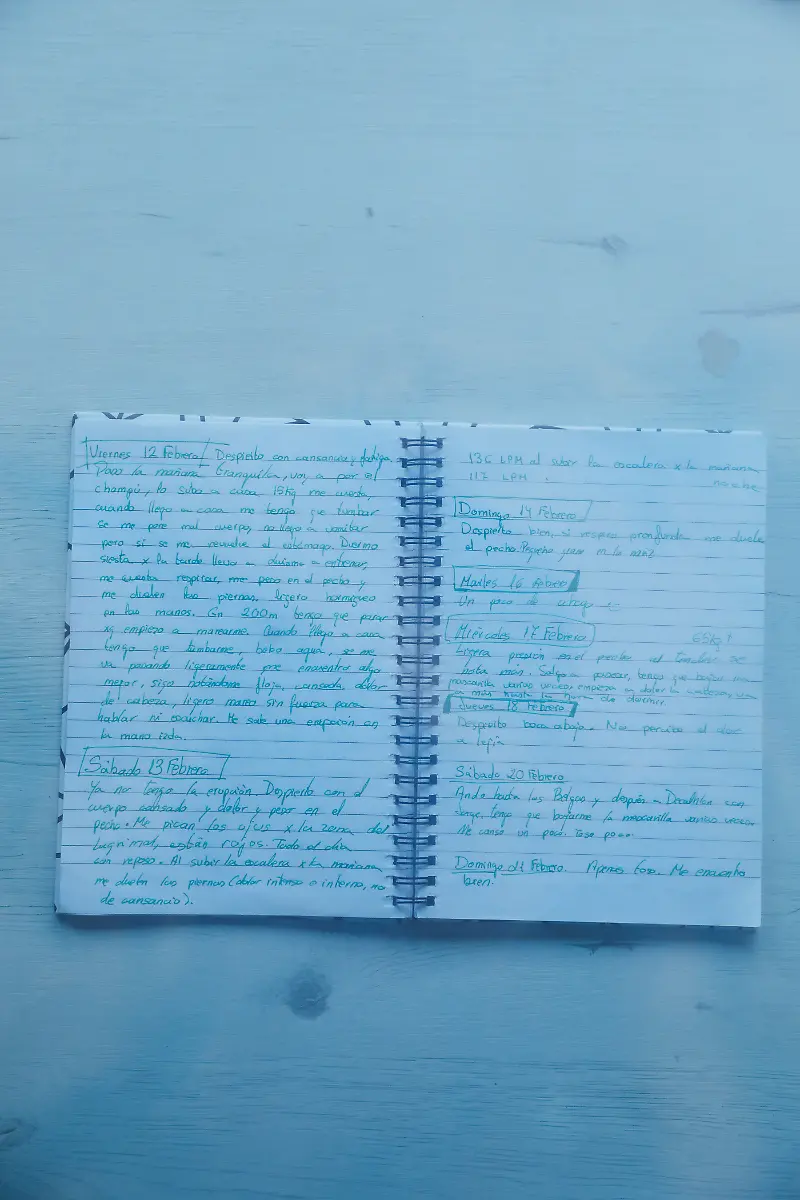 Viernes 12 Febrero Despierto con cansancio y fatiga.
Paso la mañana tranquila, voy a por el
champú, lo subo a casa, 15kg me cuesta,
cuando llego a casa me tengo que tumbar
se me pone mal cuerpo, no llego a vomitar
pero si se me revuelve el estómago. Duermo
siesta x la tarde llevo a a entrenar,
me cuesta respirar, me pesa en el pecho y
me duelen las piernas, ligero hormigueo
en las manos. En 200m tengo que parar
xq empiezo a marearme. Cuando llego a casa
tengo que tumbarme, bebo agua, se me
va pasando ligeramente me encuentro algo
mejor, sigo notándome floja, cansada, dolor
de cabeza, ligero mareo sin fuerza para
hablar ni escuchar. Me sale una erupción en
la mano izda.
Sábado 13 Febrero
Ya no tengo la erupción Despierto con el
cuerpo cansado y dolor y peso en el
pecho. Me pican los ojos x la zona del
lagrimal, están rojos. Todo el día
con reposo. Al subir la escalera x la mañana
me duelen las piernas (dolor intenso e interno, no
de cansancio).
136 LPM al subir la escalera x la mañana
117 LPM noche
Domingo 14 Febrero
Despierto bien, si respiro profundo me duele
el pecho.
Martes 16 Febrero
Un poco de
Miércoles 17 Febrero 65kg!
Ligera presión en el pecho al tumbar se
nota más. Salgo a pasear, tengo que bajar
mascarilla varias veces, empieza a doler la cabeza, va
a más hasta la hora de dormir.
Jueves 18 Febrero
Despierto boca abajo. No percibo el olor
a lejía
Sábado 20 Febrero
Ando hasta los Belgas y después a Decathlon con
tengo que bajarme la mascarilla varias veces
Me canso un poco. Toso poco.
Domingo 21 Febrero. Apenas toso. Me encuentro
bien.